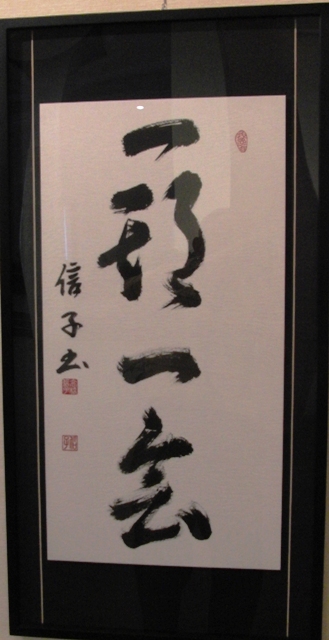 一期一会
信子书